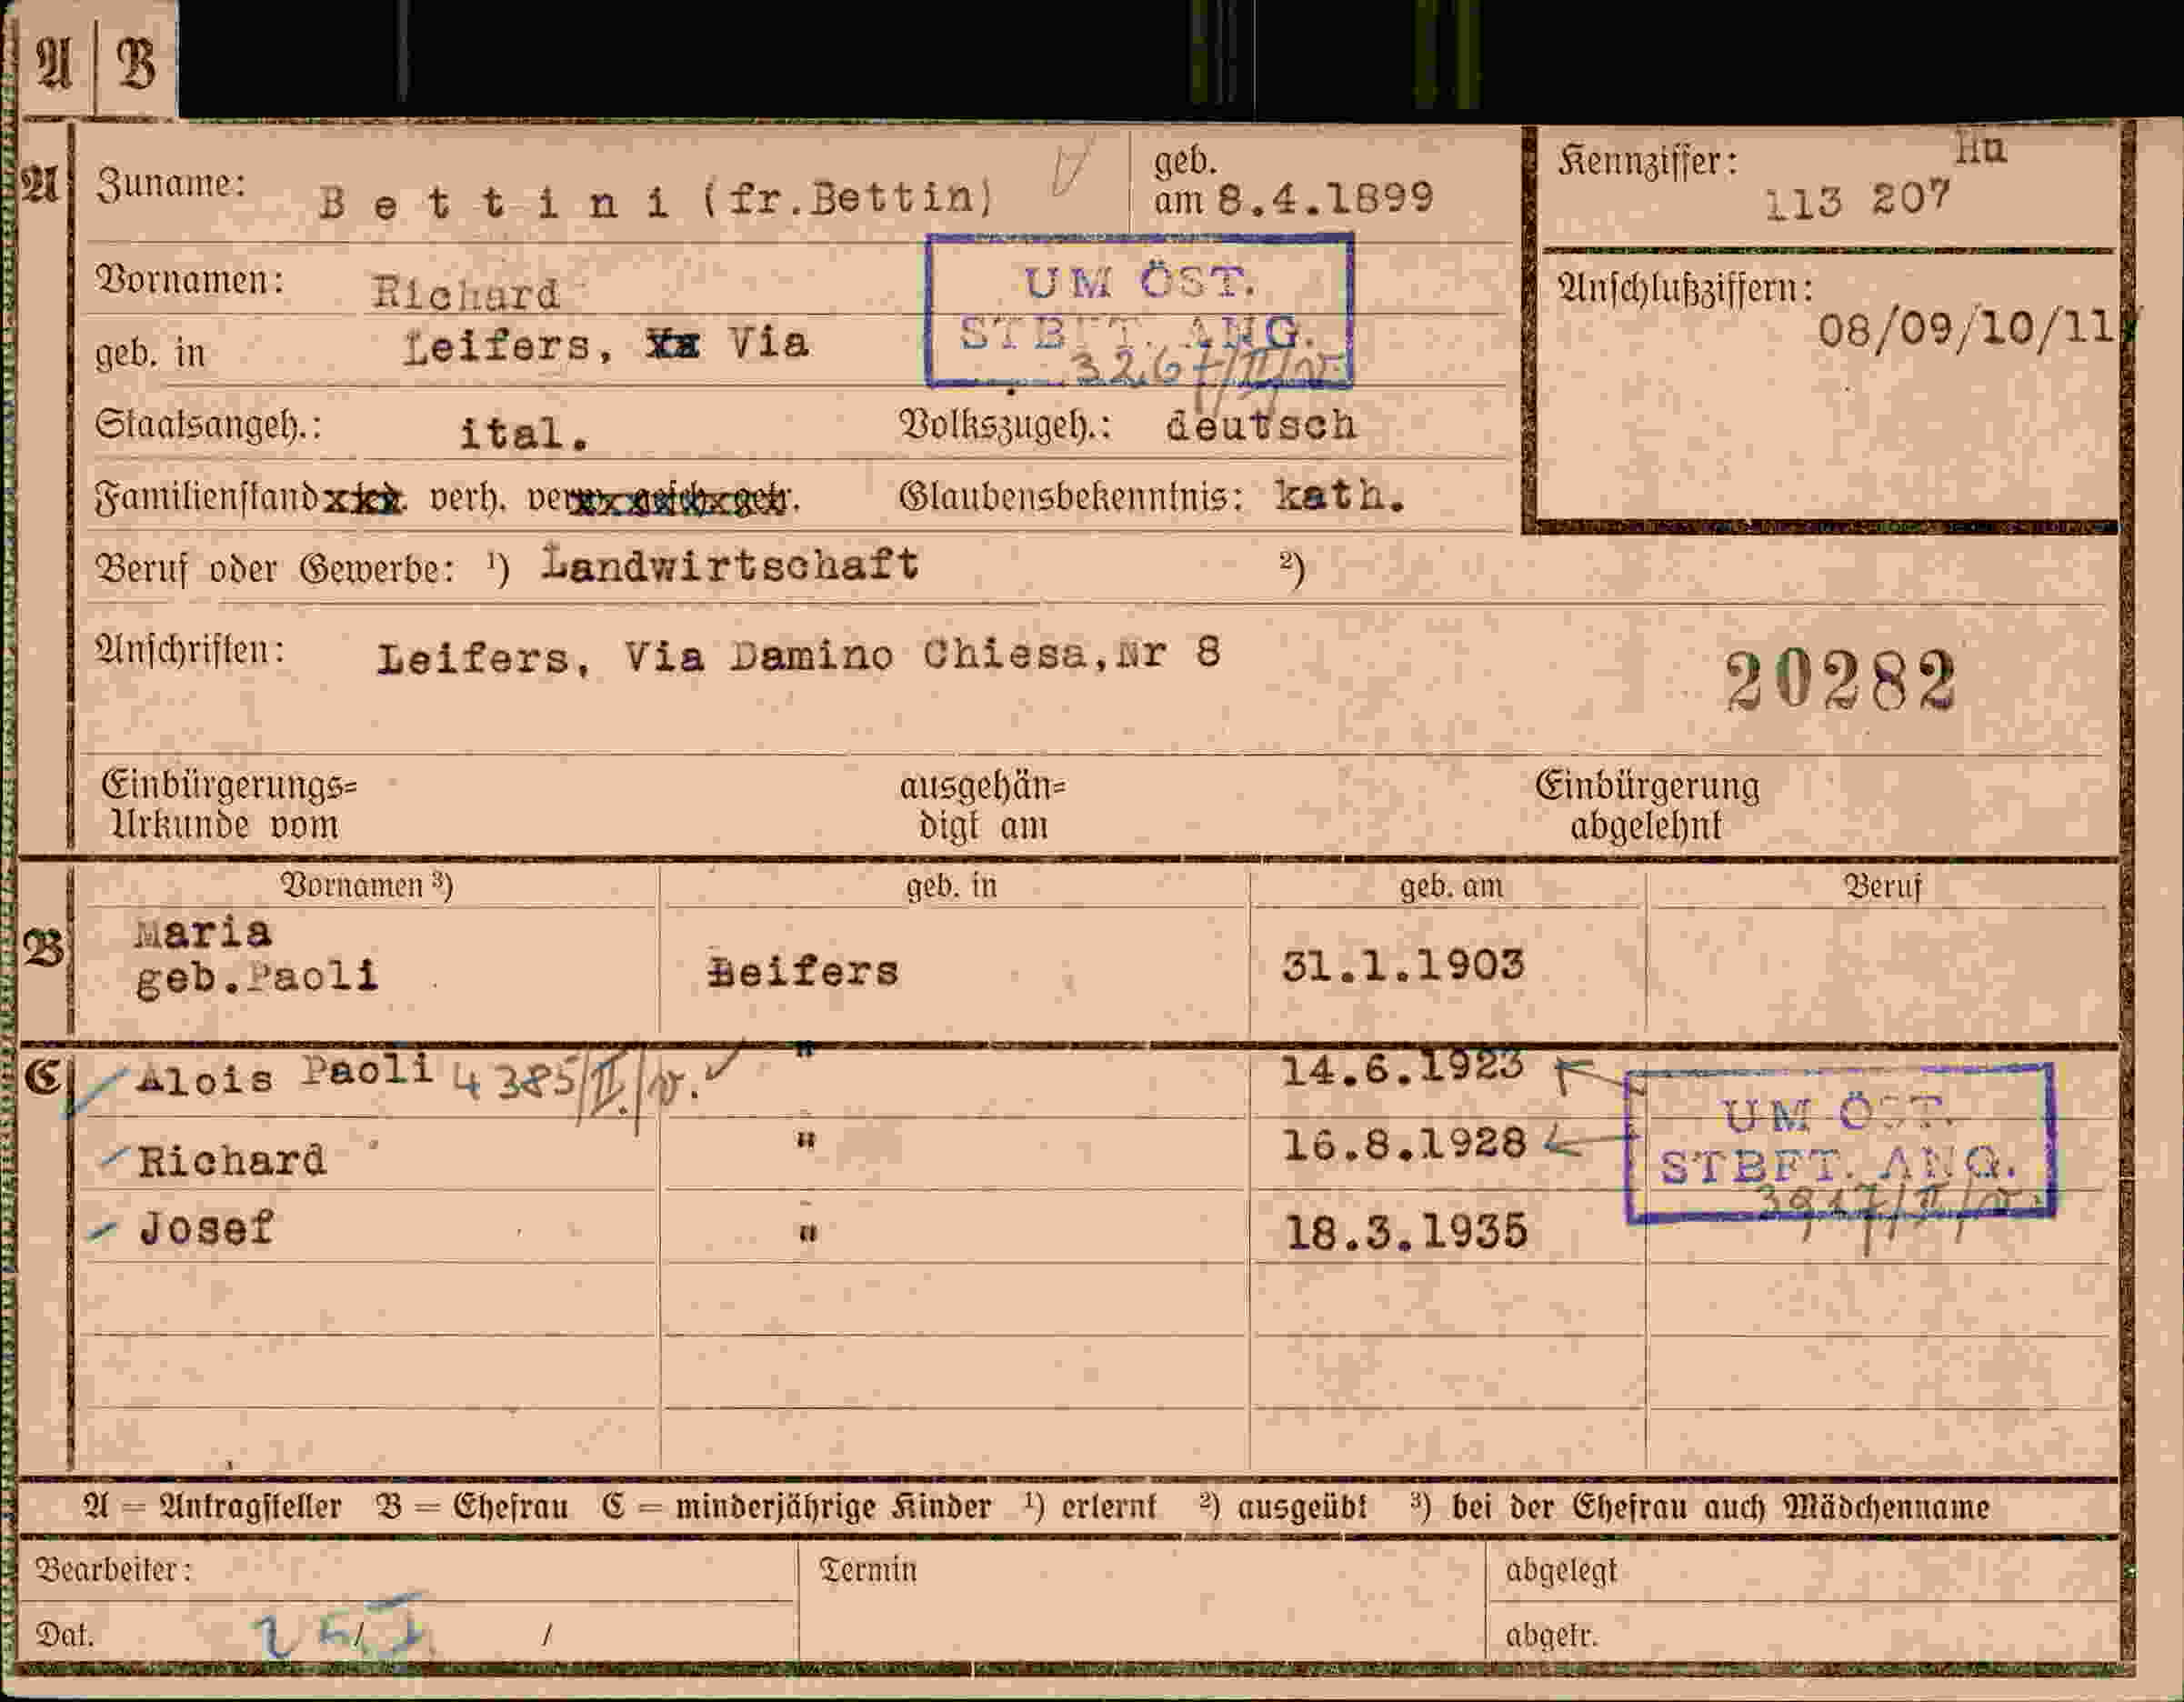 A B
A Zuname: Bettini (fr.Bettin) geb. am 8.4.1899
Kennziffer: Hu
113 207
Vornamen: Richard
UM ÖST.
STBFT. ANG.
Anschlußziffern:
08/09/10/11
geb. in Leifers, Via
Staatsangeh.: ital. Volkszugeh.: deutsch
Familienstand verh. Glaubensbekenntnis: kath.
Beruf oder Gewerbe: ¹) Landwirtschaft ²)
Anschriften: Leifers, Via Damino Chiesa,Nr 8
20282
Einbürgerungs=
Urkunde vom
ausgehän=
digt am
Einbürgerung
abgelehnt
Vornamen ³) geb. in geb. am Beruf
B Maria
geb.Paoli Leifers 31.1.1903
C Alois Paoli 4385/II./v. " 14.6.1923
Richard " 16.8.1928
UM ÖST.
STBFT. ANG.
3917/II/v.
Josef " 18.3.1935
A = Antragsteller B = Ehefrau C = minderjährige Kinder ¹) erlernt ²) ausgeübt ³) bei der Ehefrau auch Mädchenname
Bearbeiter: Termin abgelegt
Dat. / / abgetr.